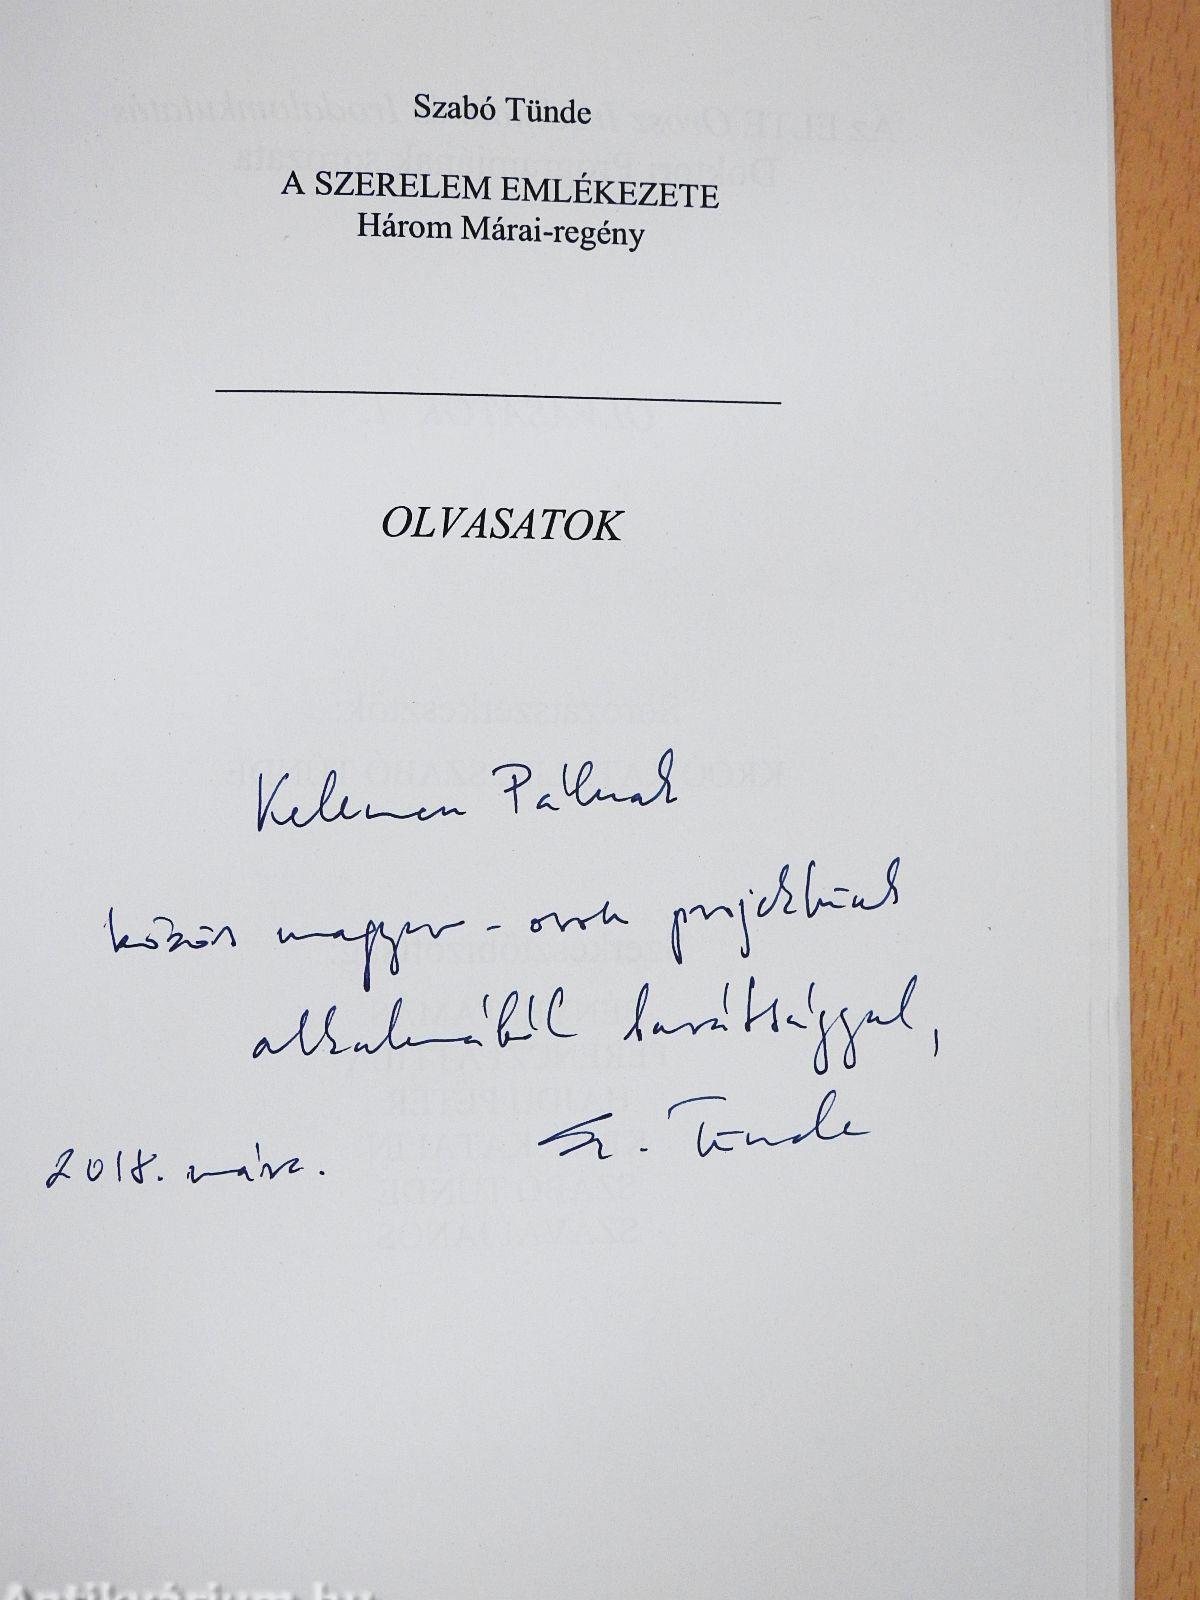 Szabó Tünde
A SZERELEM EMLÉKEZETE
Három Márai-regény
OLVASATOK
Kelemen Pálnak
közös magyar - orosz projektünk
alkalmából barátsággal,
Sz. Tünde
2018. márc.
Antikvárium.hu